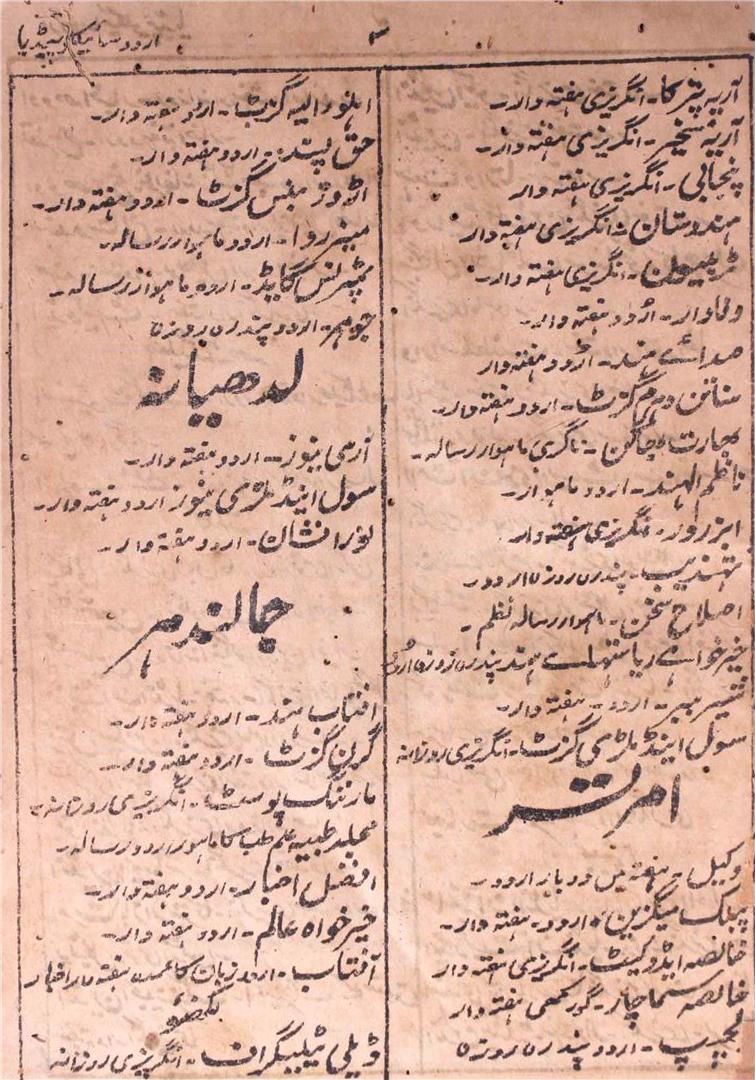 اردو سائیکلوپیڈیا
۳
آریہ پترکا۔ انگریزی ہفتہ وار۔
آریہ میسنجر۔ انگریزی ہفتہ وار۔
پنجابی۔ انگریزی ہفتہ وار
ہندوستان۔ انگریزی ہفتہ وار
ٹریبیون۔ انگریزی ہفتہ وار۔
وفادار۔ اردو ہفتہ وار۔
صدائے ہند۔ اردو ہفتہ وار
سناتن دھرم گزٹ۔ اردو ہفتہ وار۔
بھارت۔ ناگری ماہوار رسالہ۔
ناظم الہند۔ اردو ماہوار۔
ابزرور۔ انگریزی ہفتہ وار
تہذیب۔ پندرہ روزہ اردو۔
اصلاح سخن۔ ماہوار رسالہ نظم۔
خیرخواہے ریاستہائے ہند پندرہ روزہ اردو
شیر ببر۔ اردو۔ ہفتہ وار۔
سول اینڈ ملٹری گزٹ۔ انگریزی روزانہ
امرتسر
وکیل۔ ہفتہ میں دو بار اردو۔
پبلک میگزین۔ اردو۔ ہفتہ وار۔
خالصہ ایڈوکیٹ۔ انگریزی ہفتہ وار
خالصہ سماچار۔ گورمکھی ہفتہ وار
۔ اردو پندرہ روزہ
اہلووالیہ گزٹ۔ اردو ہفتہ وار۔
حق پسند۔ اردو ہفتہ وار۔
گزٹ۔ اردو ہفتہ وار۔
۔ اردو ماہوار رسالہ۔
گایڈ۔ اردو ماہوار رسالہ۔
جوہر۔ اردو پندرہ روزہ
لدھیانہ
آرمی نیوز۔ اردو ہفتہ وار۔
سول اینڈ ملٹری نیوز اردو ہفتہ وار۔
نورافشان۔ اردو ہفتہ وار۔
جالندہر
افتاب ہند۔ اردو ہفتہ وار۔
گرین گزٹ۔ اردو ہفتہ وار۔
مارننگ پوسٹ۔ انگریزی روزانہ۔
مجلہ طبیہ علم طب کا ماہوار اردو رسالہ۔
افضل اخبار۔ اردو ہفتہ وار۔
خیرخواہ عالم۔ اردو ہفتہ وار۔
آفتاب۔ اردو زبان کا عمدہ ہفتہ وار اخبار
لکھنؤ
ڈیلی ٹیلیگراف۔ انگریزی روزانہ